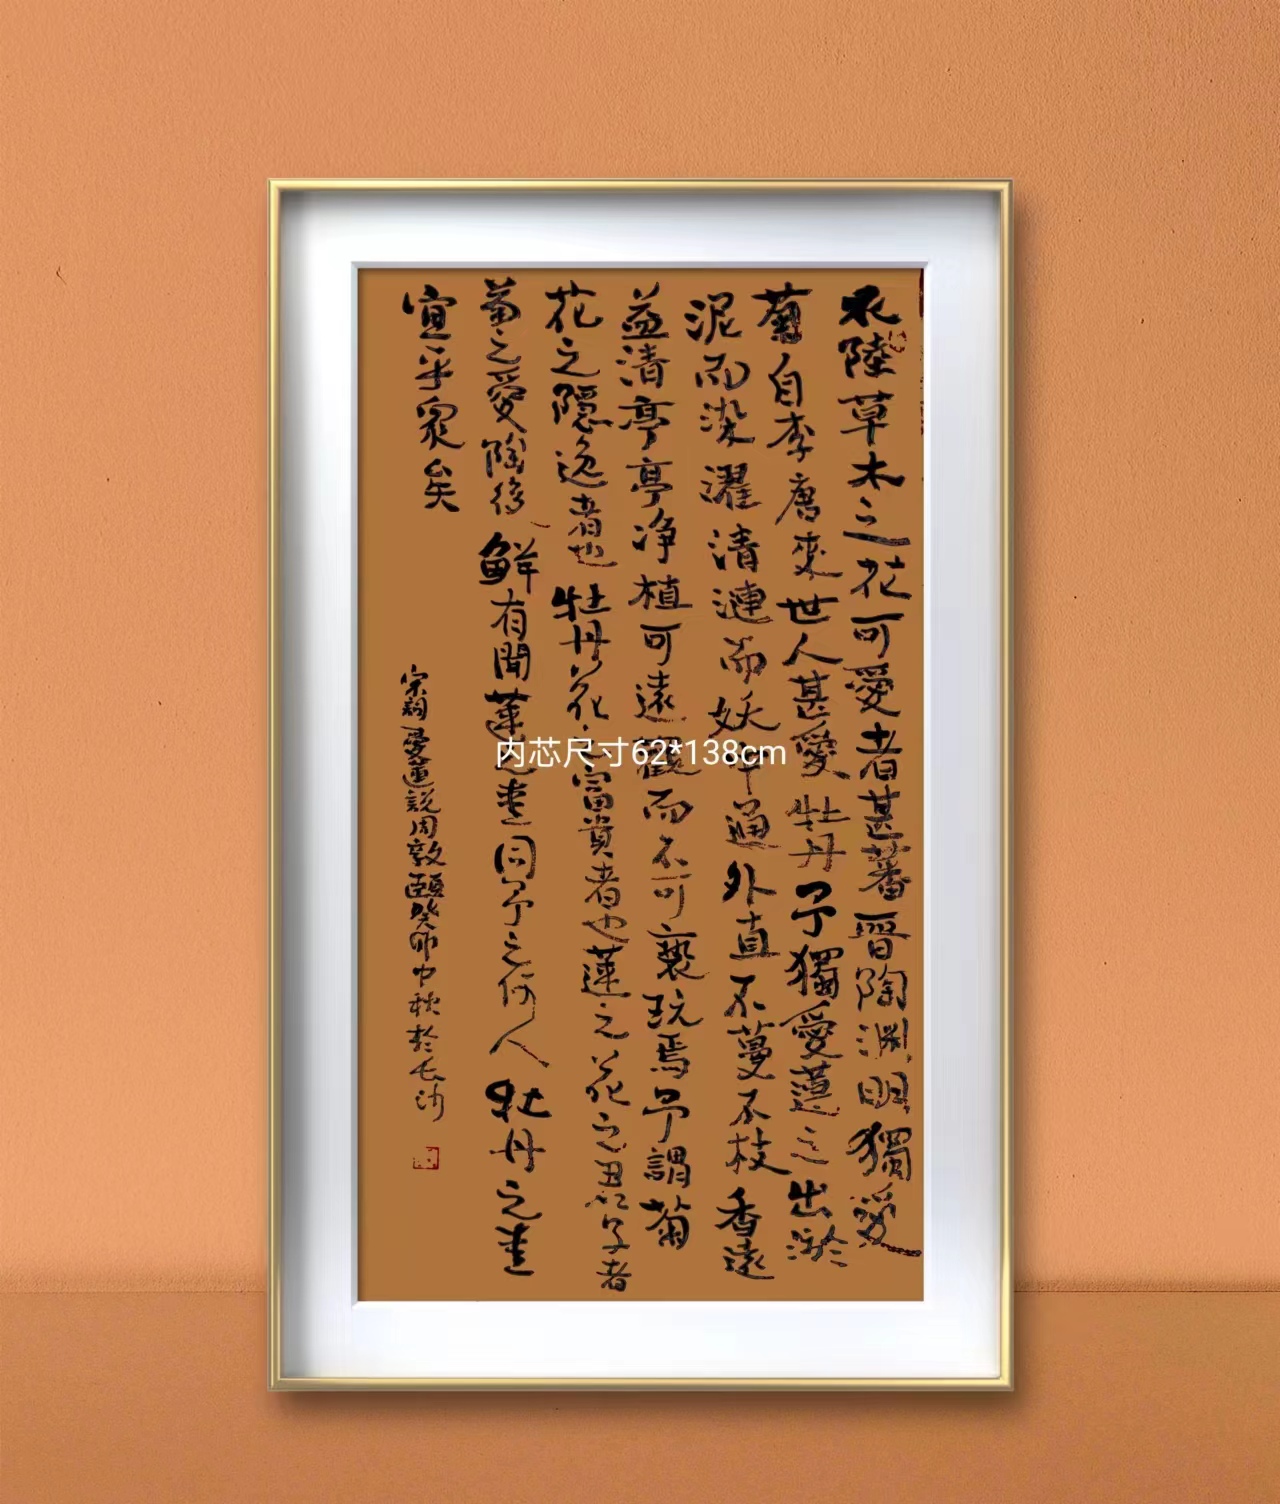 水陸草木之花可愛者甚蕃晋陶渊明獨愛
菊自李唐來世人甚愛牡丹予獨愛蓮之出淤
泥而染濯清漣而妖中通外直不蔓不枝香遠
益清亭亭净植可遠觀而不可褻玩焉予謂菊
花之隱逸者也牡丹花之富貴者也蓮之花之君子者
菊之愛陶後鮮有聞蓮之愛同予之何人牡丹之愛
宜乎眾矣
宋詞愛蓮説周敦頤癸卯中秋於长沙
内芯尺寸62*138cm